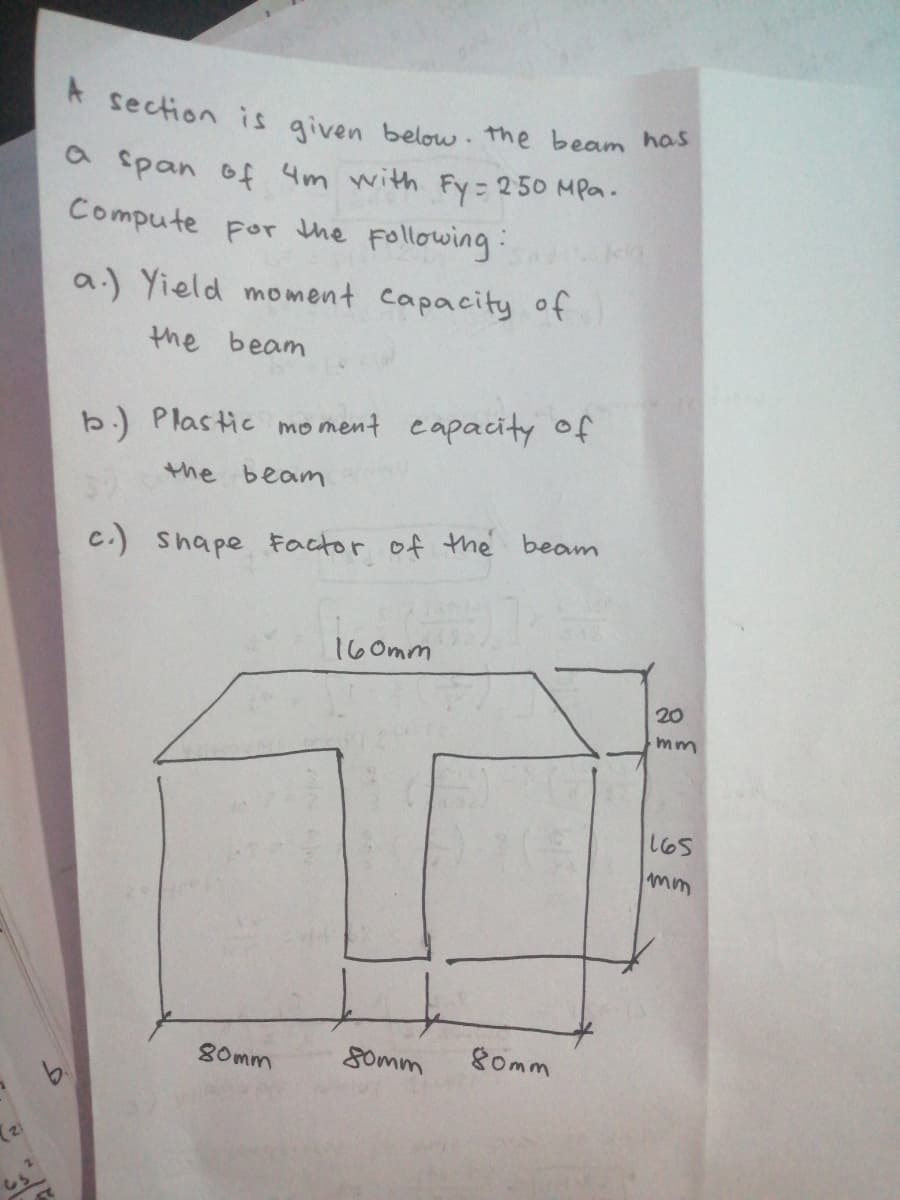 A section is given below. the beam has
a span of 4m with Fy = 250 MPa.
Compute For the Following:
a.) Yield moment capacity of
the beam
b.) Plastic moment capacity of
the beam
c.) Shape Factor of the beam
160mm
20
mm
165
mm
80mm 80mm 80mm
b.